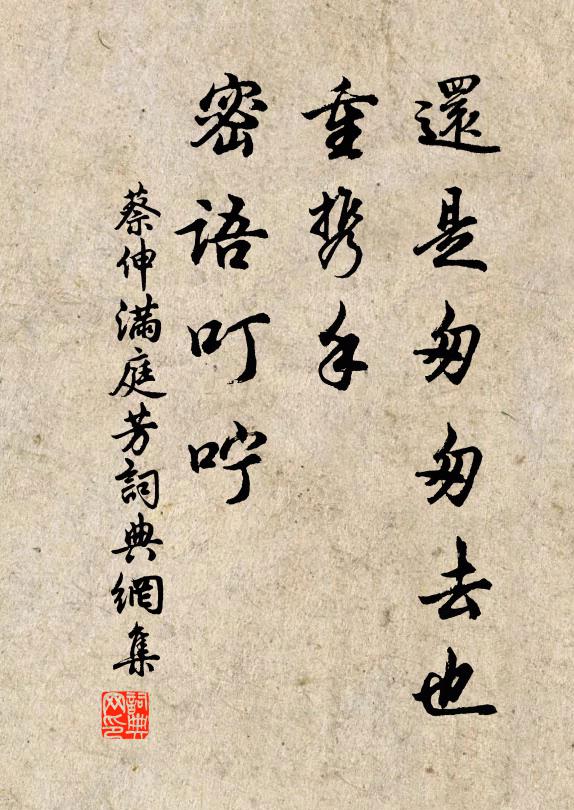 還是匆匆去也
重携手
密語叮咛
蔡伸滿庭芳詞典網集
詞典网印